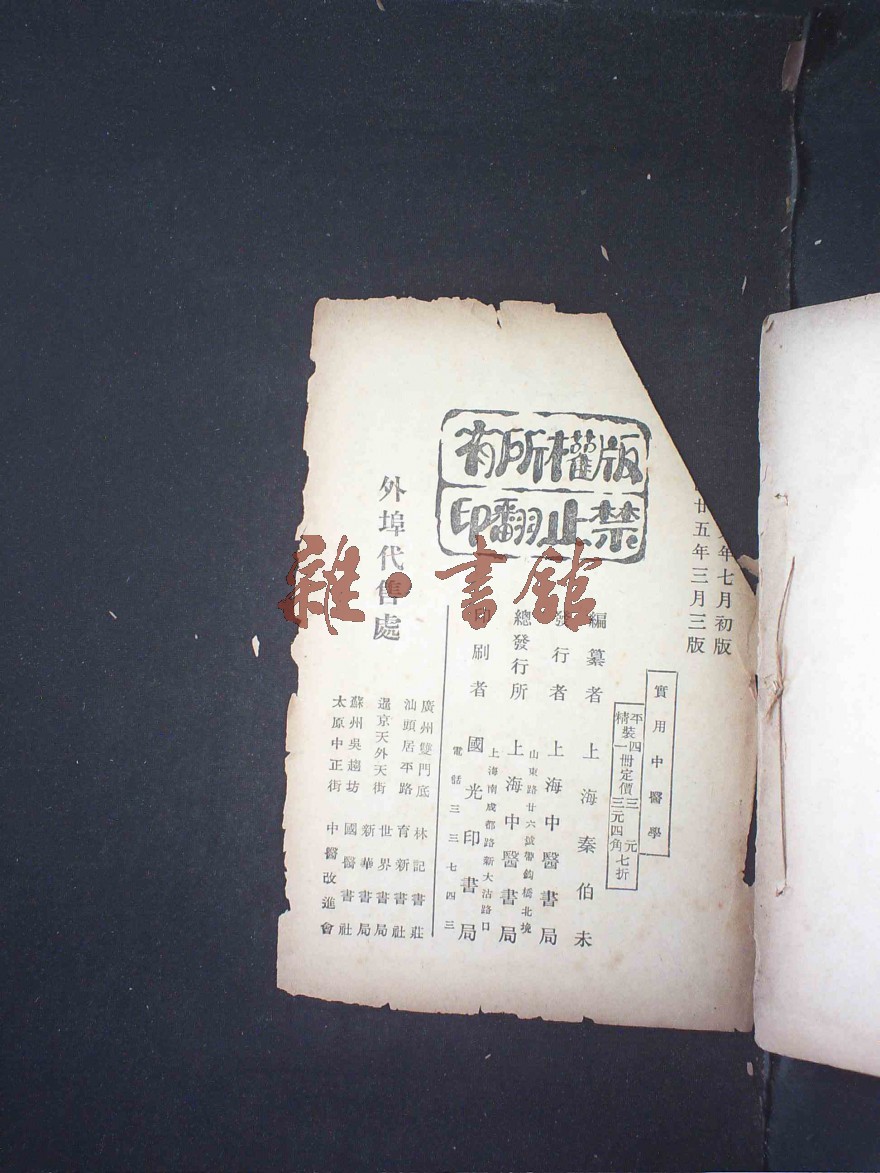 年七月初版
廿五年三月三版
實用中醫學
平裝四冊定價三元
精裝一冊定價三元四角七折
版權所有
禁止翻印
編纂者 上海秦伯未
發行者 上海中醫書局
山東路廿六號帶鈎橋北境
總發行所 上海中醫書局
上海南成都路新大沽路口
印刷者 國光印書局
電話三三七四三
外埠代售處
廣州雙門底 林記書莊
汕頭居平路 育新書社
暹京天外天街 世界書局
新華書局
蘇州吳趨坊 國醫書社
太原中正街 中醫改進會
雜·書館